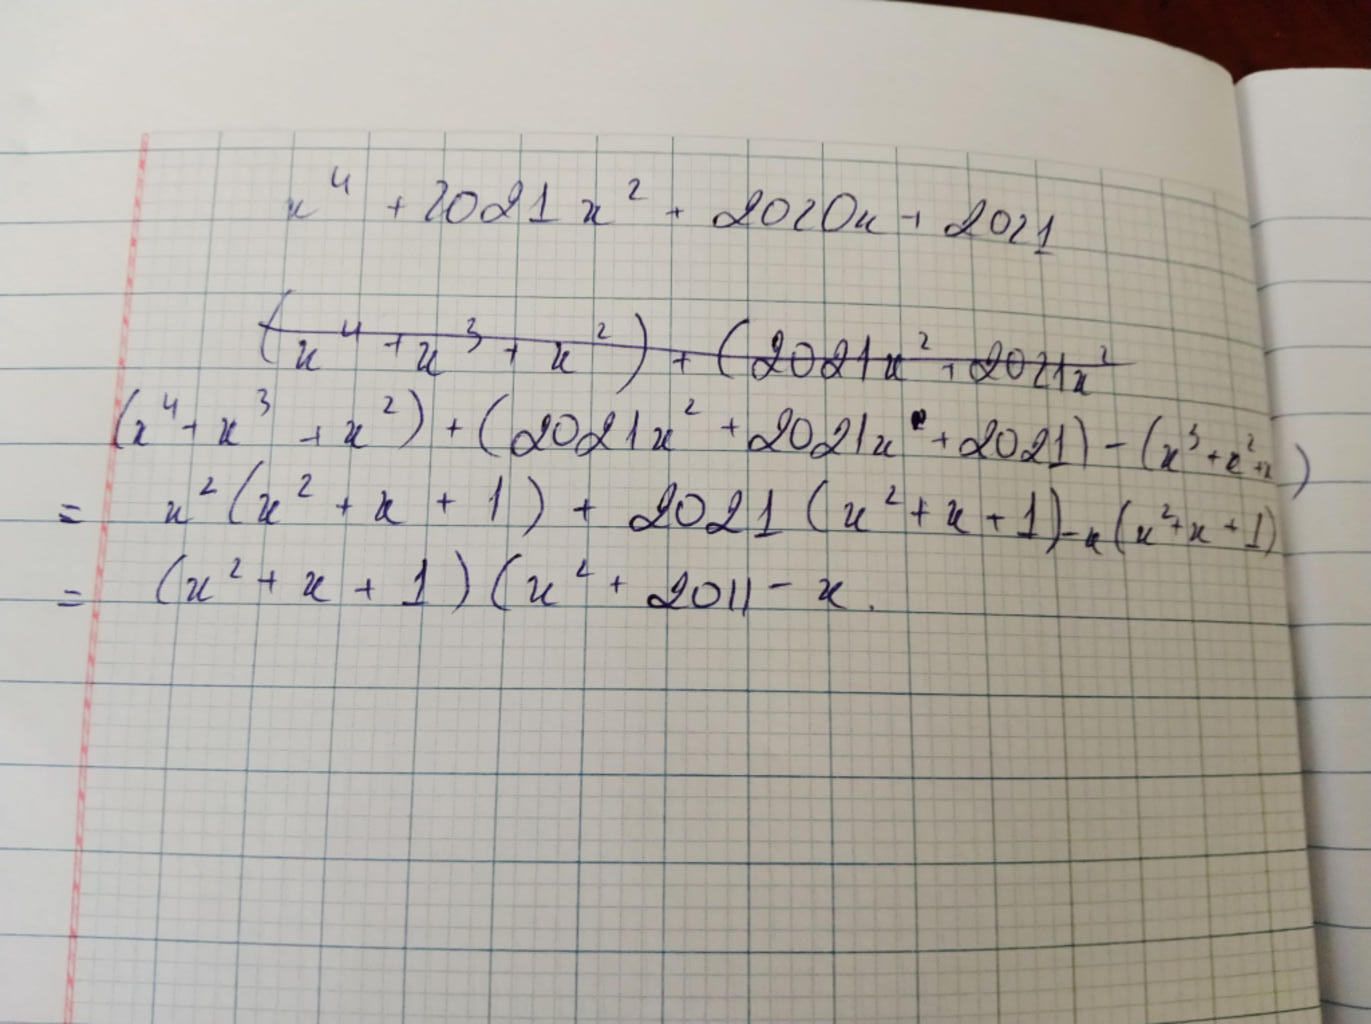 x⁴ + 2021x² + 2020x + 2021
(x⁴ + x³ + x²) + (2021x² + 2021x²
(x⁴ + x³ + x²) + (2021x² + 2021x + 2021) - (x³ + x² + x)
= x²(x² + x + 1) + 2021(x² + x + 1) - x(x² + x + 1)
= (x² + x + 1)(x² + 2011 - x.